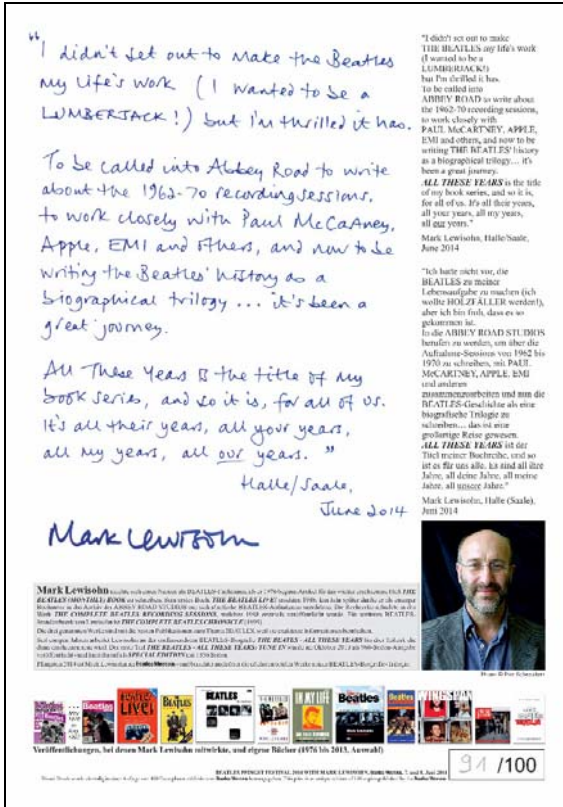 "I didn't set out to make the Beatles
my life's work (I wanted to be a
LUMBERJACK!) but I'm thrilled it has.
To be called into Abbey Road to write
about the 1962-70 recording sessions,
to work closely with Paul McCartney,
Apple, EMI and others, and now to be
writing the Beatles' history as a
biographical trilogy ... it's been a
great journey.
All These Years is the title of my
book series, and so it is, for all of us.
It's all their years, all your years,
all my years, all our years."
Halle/Saale,
June 2014
Mark Lewisohn
"I didn't set out to make
THE BEATLES my life's work
(I wanted to be a
LUMBERJACK!)
but I'm thrilled it has.
To be called into
ABBEY ROAD to write about
the 1962-70 recording sessions,
to work closely with
PAUL McCARTNEY, APPLE,
EMI and others, and now to be
writing THE BEATLES' history
as a biographical trilogy... it's
been a great journey.
ALL THESE YEARS is the title
of my book series, and so it is,
for all of us. It's all their years,
all your years, all my years,
all our years."
Mark Lewisohn, Halle/Saale,
June 2014
"Ich hatte nicht vor, die
BEATLES zu meiner
Lebensaufgabe zu machen (ich
wollte HOLZFÄLLER werden!),
aber ich bin froh, dass es so
gekommen ist.
In die ABBEY ROAD STUDIOS
berufen zu werden, um über die
Aufnahme-Sessions von 1962 bis
1970 zu schreiben, mit PAUL
McCARTNEY, APPLE, EMI
und anderen
zusammenzuarbeiten und nun die
BEATLES-Geschichte als eine
biografische Trilogie zu
schreiben... das ist eine
großartige Reise gewesen.
ALL THESE YEARS ist der
Titel meiner Buchreihe, und so
ist es für uns alle. Es sind all ihre
Jahre, all deine Jahre, all meine
Jahre, all unsere Jahre."
Mark Lewisohn, Halle (Saale),
Juni 2014
Mark Lewisohn
THE BEATLES LIVE!
THE COMPLETE BEATLES RECORDING SESSIONS
THE COMPLETE BEATLES CHRONICLE
SPECIAL EDITION
Beatles
BEATLES LIVE!
BEATLES
BEATLES
IN MY LIFE
Beatles
WINGSPAN
Veröffentlichungen, bei denen Mark Lewisohn mitwirkte, und eigene Bücher (1976 bis 2013, Auswahl)
91 /100